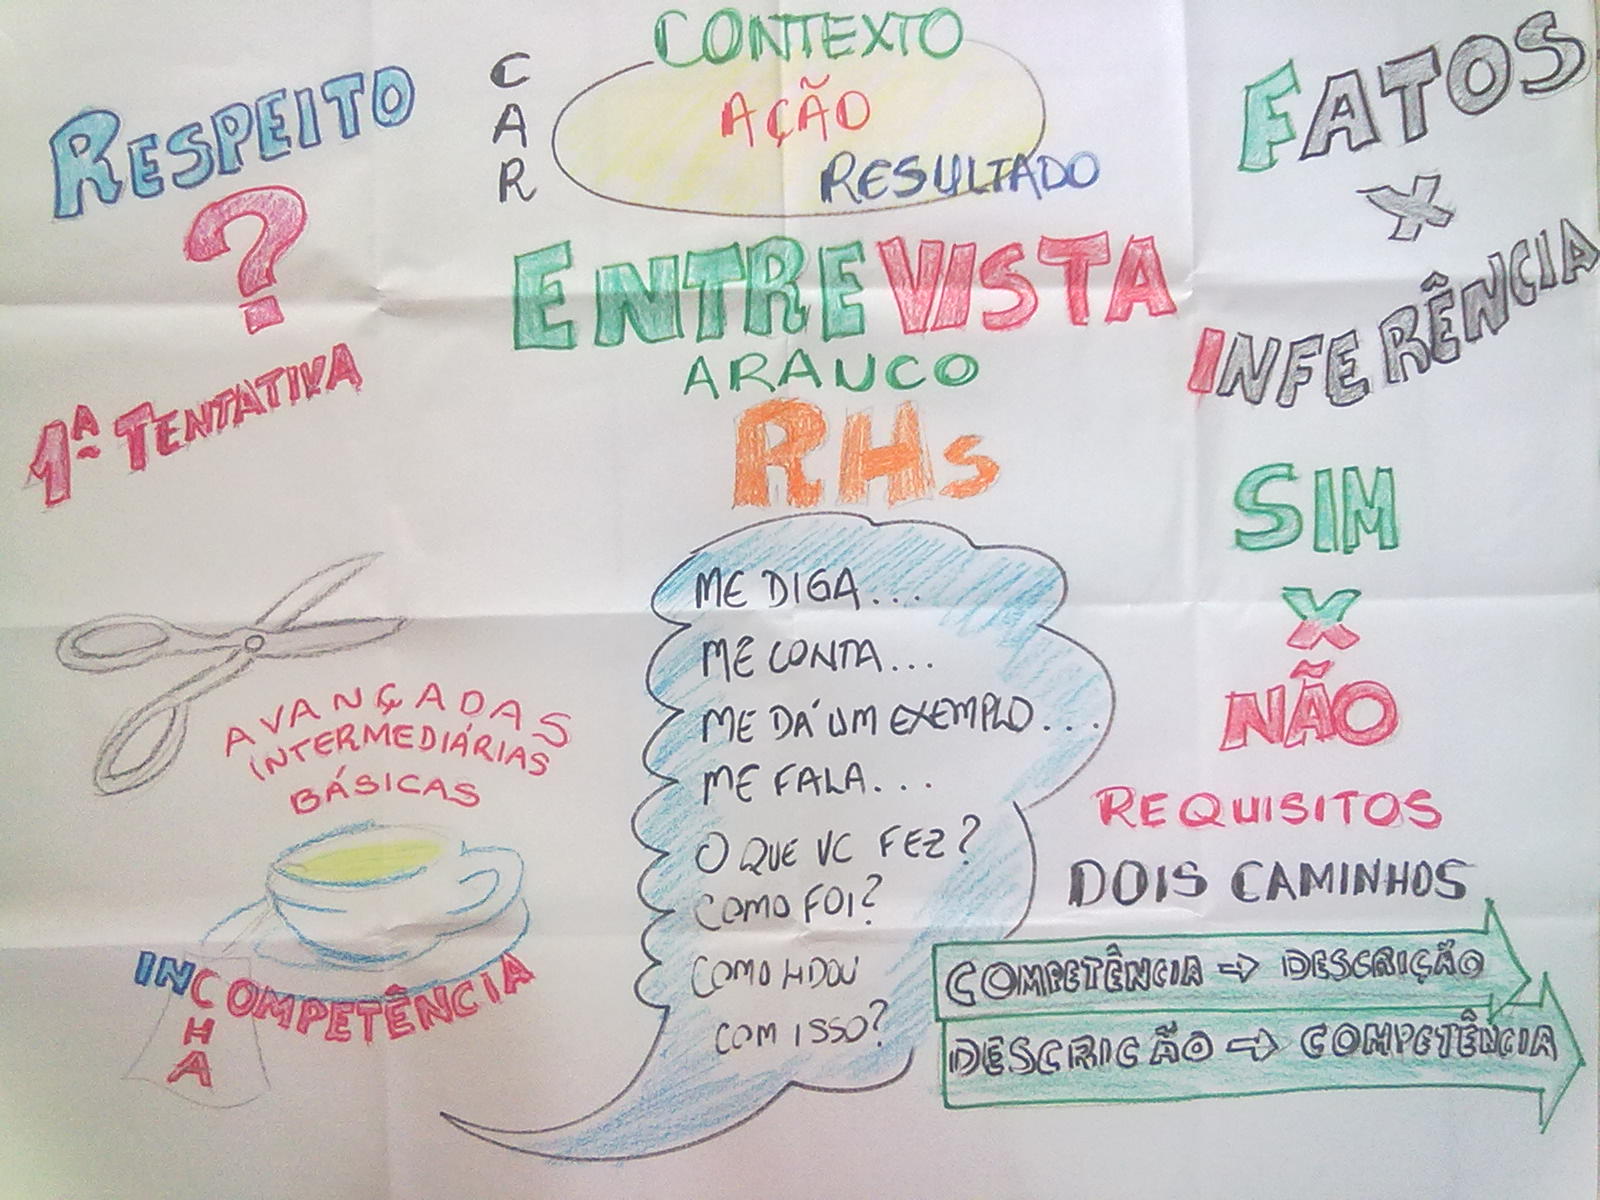 RESPEITO
?
1ª TENTATIVA
CAR
CONTEXTO
AÇÃO
RESULTADO
ENTREVISTA
ARAUCO
RHs
FATOS
X
INFERÊNCIA
SIM
X
NÃO
REQUISITOS
DOIS CAMINHOS
COMPETÊNCIA → DESCRIÇÃO
DESCRICÃO → COMPETÊNCIA
ME DIGA...
ME CONTA...
ME DÁ UM EXEMPLO....
ME FALA...
O QUE VC FEZ?
COMO FOI?
COMO LIDOU
COM ISSO?
AVANÇADAS
INTERMEDIÁRIAS
BÁSICAS
INCOMPETÊNCIA
CHA